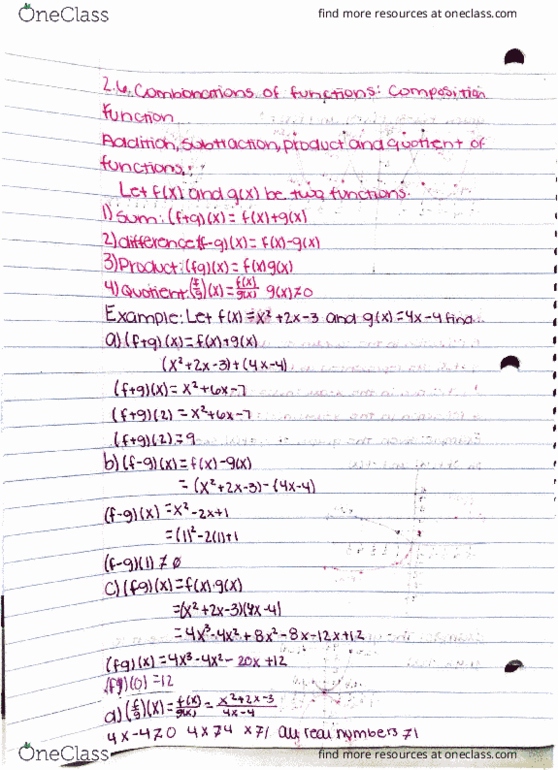 OneClass
find more resources at oneclass.com
2.6, Combonations of functions: Composition
function
Addition, subtraction, product and quotient of
functions.
Let f(x) and g(x) be two functions.
1) Sum: (f+g)(x) = f(x)+g(x)
2) difference: (f-g)(x) = f(x)-g(x)
3) Product: (fg)(x) = f(x)g(x)
4) Quotient: (f/g)(x) = f(x)/g(x) g(x)≠0
Example: Let f(x) = x² +2x-3 and g(x) = 4x-4 find
a) (f+g)(x) = f(x)+g(x)
(x²+2x-3)+(4x-4)
(f+g)(x) = x²+6x-7
(f+g)(2) = x²+6x-7
(f+g)(2) = 9
b) (f-g)(x) = f(x)-g(x)
= (x²+2x-3)-(4x-4)
(f-g)(x) = x²-2x+1
= (1)²-2(1)+1
(f-g)(1) ≠ 0
c) (fg)(x) = f(x)·g(x)
=(x²+2x-3)(4x-4)
= 4x³-4x²+8x²-8x-12x+12
(fg)(x) = 4x³-4x²-20x+12
(fg)(0) = 12
d) (f/g)(x) = f(x)/g(x) = x²+2x-3/4x-4
4x-4≠0 4x≠4 x≠1 all real numbers ≠1
OneClass
find more resources at oneclass.com